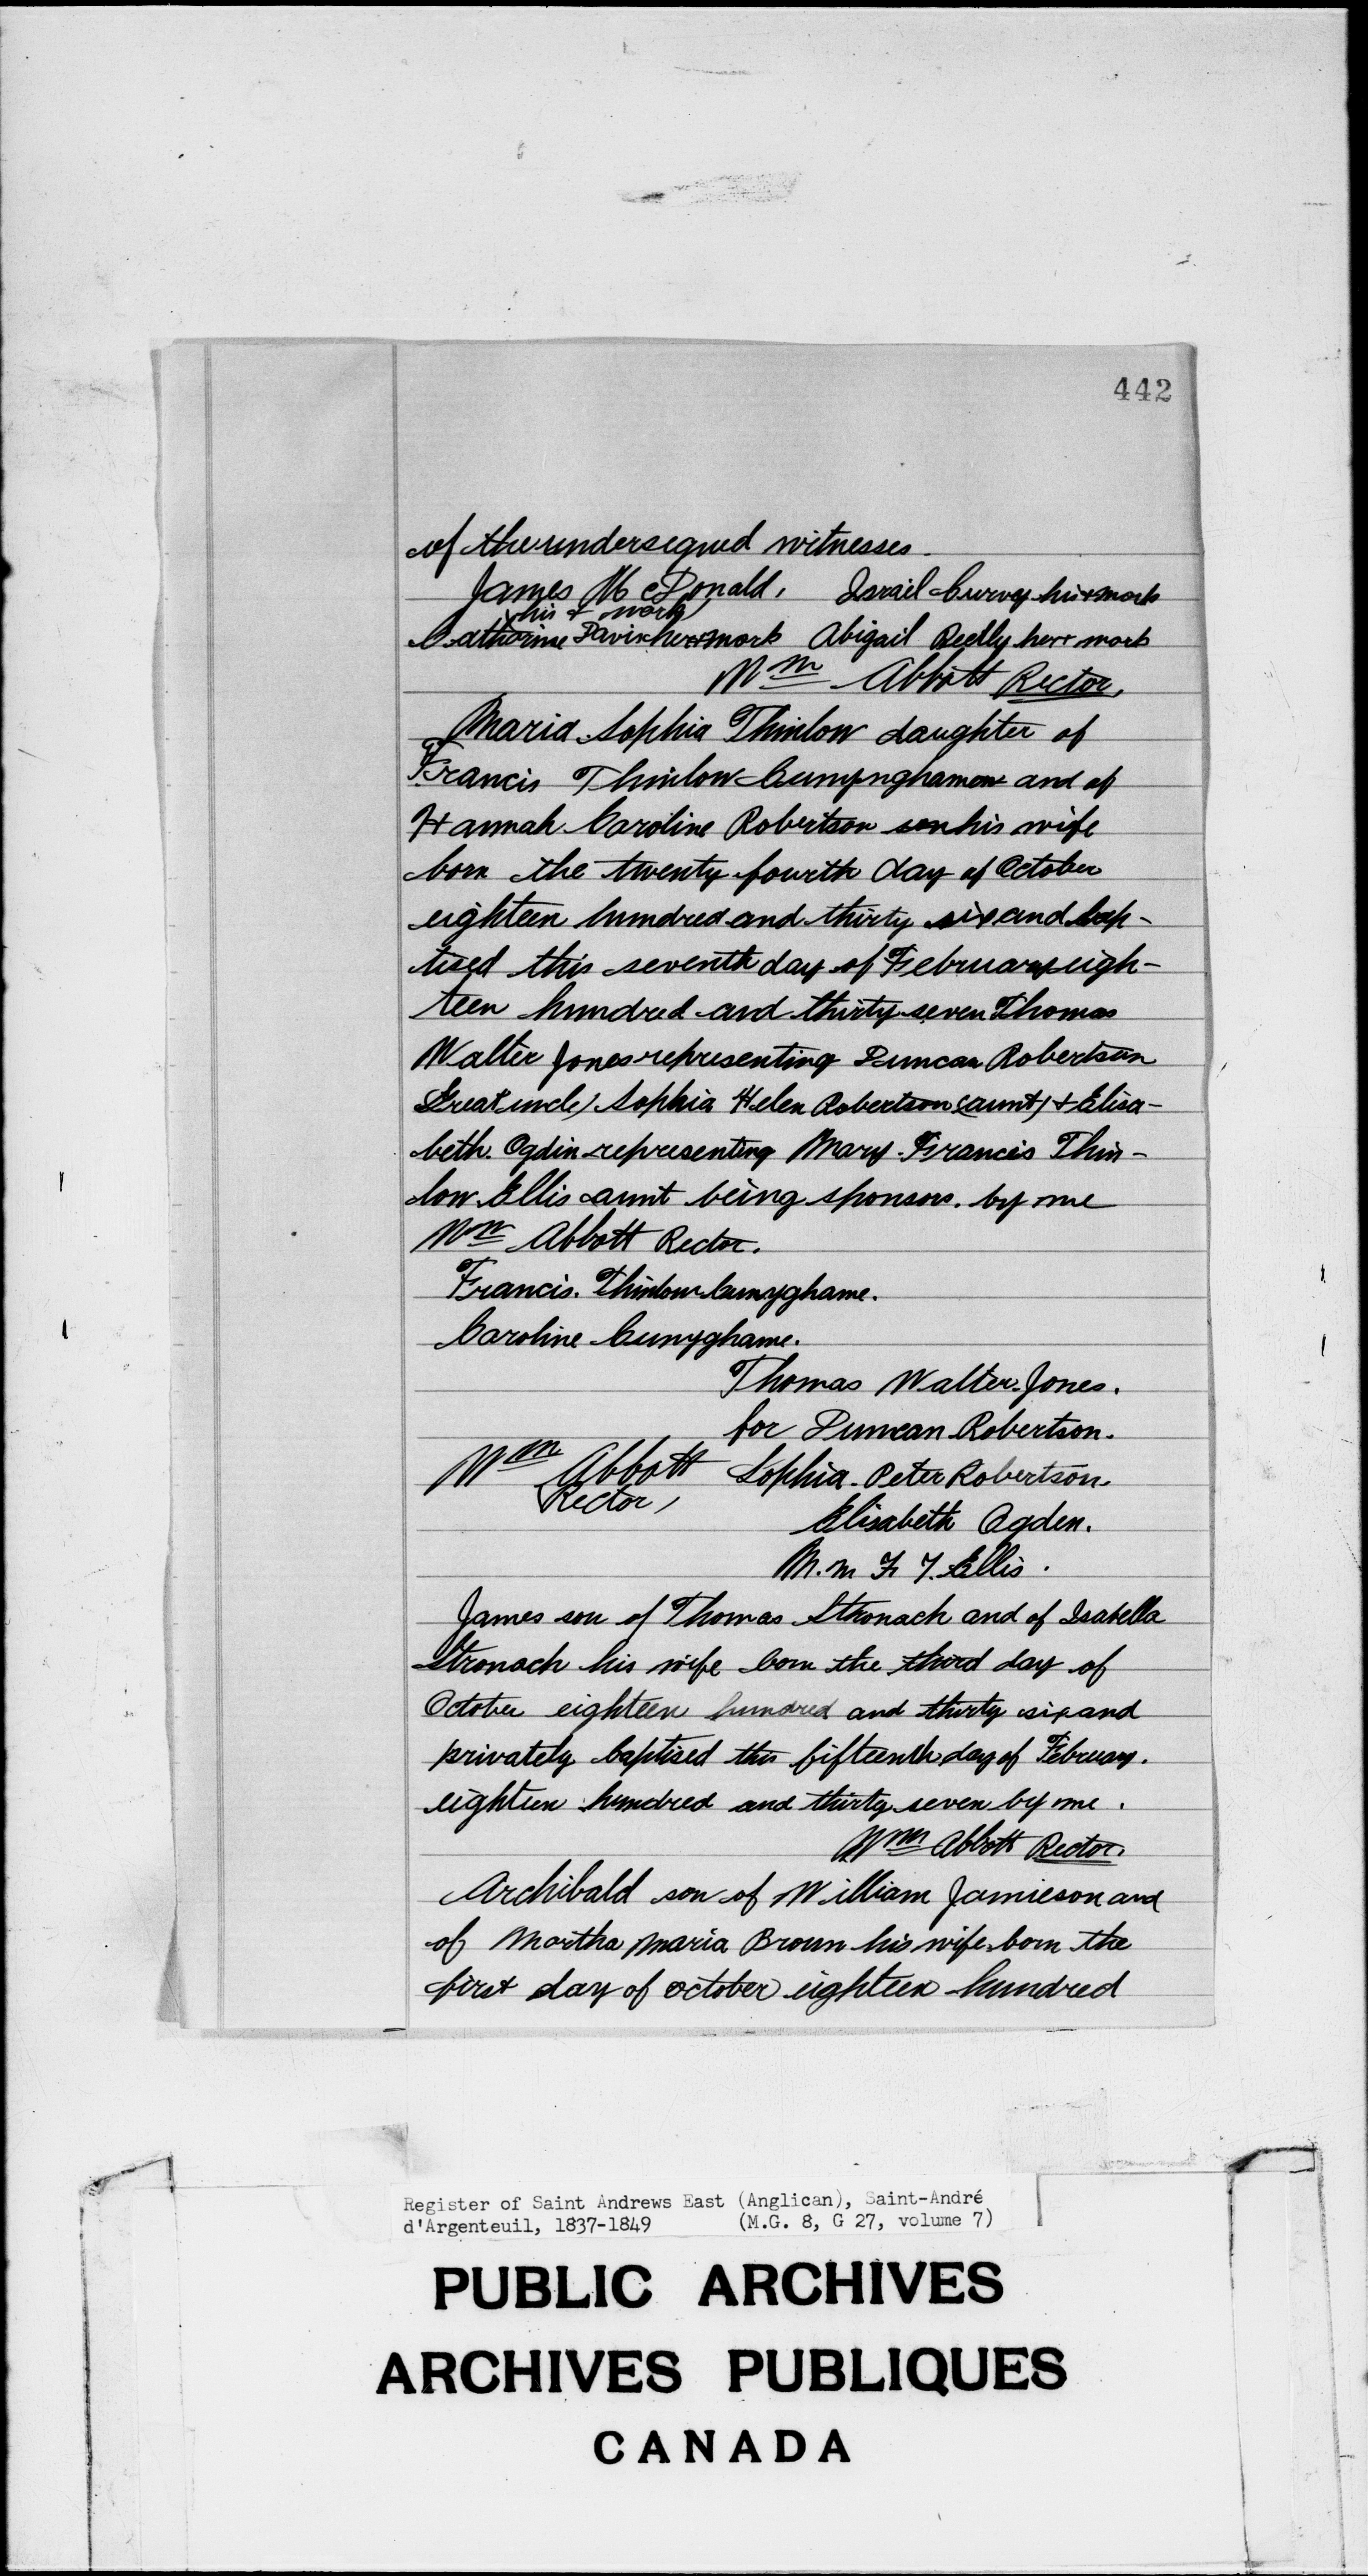 442
of the undersigned witnesses.
James McDonald, Israil Curvey his + mark
his + mark
Catharine Davis her + mark Abigail Reelly her + mark
Wm Abbott Rector,
Maria Sophia Thinlow daughter of
Francis Thinlow and of
Hannah Caroline Robertson his wife
born the twenty fourth day of October
eighteen hundred and thirty six and bap-
tised this seventh day of February eigh-
teen hundred and thirty seven Thomas
Walter Jones representing Duncan Robertson
Great uncle) Sophia Helen Robertson (aunt) + Elisa-
beth Ogdin representing Mary Francis Thin-
low Ellis aunt being sponsors. by me
Wm Abbott Rector.
Francis. Thinlow Cunyghame.
Caroline Cunyghame.
Thomas Walter Jones.
for Duncan Robertson.
Wm Abbott Sophia Peter Robertson.
Rector,
Elisabeth Ogden.
M. m F T. Ellis.
James son of Thomas Stronach and of Isabella
Stronach his wife born the third day of
October eighteen hundred and thirty six and
privately baptised this fifteenth day of February.
eighteen hundred and thirty seven by me.
Wm Abbott Rector.
Archibald son of William Jamieson and
of Martha Maria Broun his wife born the
first day of october eighteen hundred
Register of Saint Andrews East (Anglican), Saint-André
d'Argenteuil, 1837-1849 (M.G. 8, G 27, volume 7)
PUBLIC ARCHIVES
ARCHIVES PUBLIQUES
CANADA